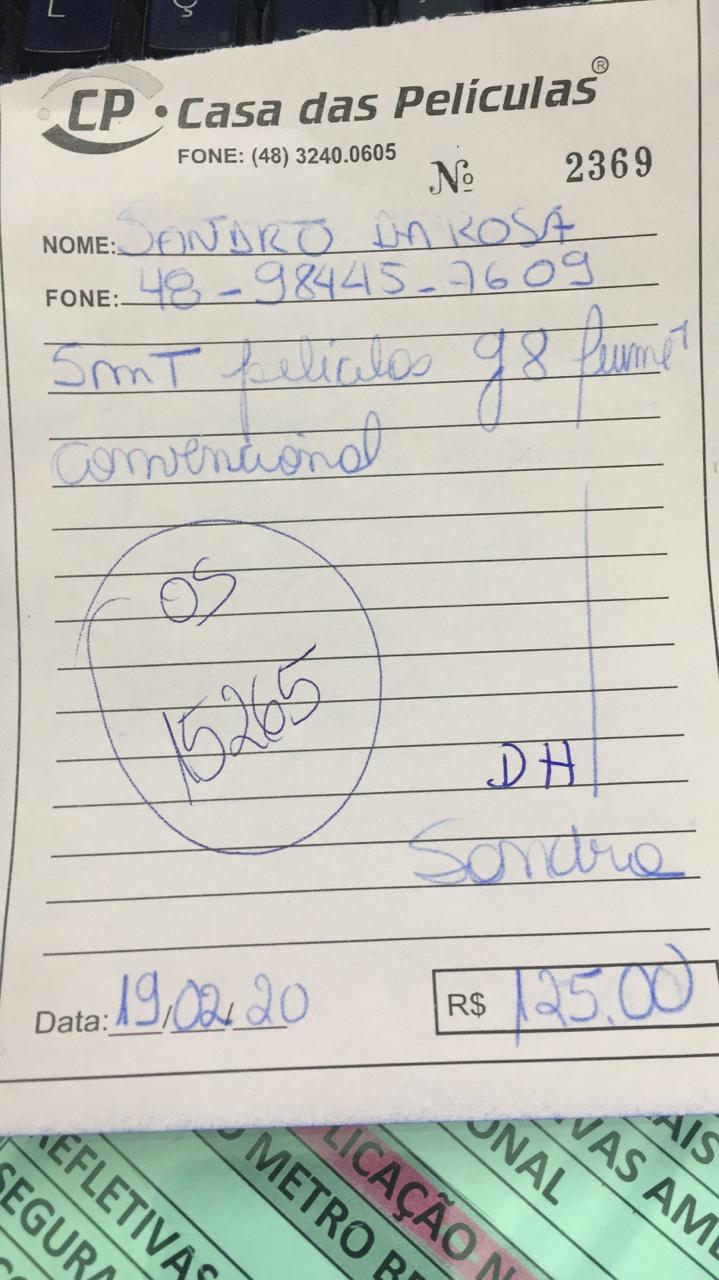 L Ç
CP • Casa das Películas®
FONE: (48) 3240.0605
Nº 2369
NOME: SANDRO DA ROSA
FONE: 48-98445-7609
5mT películas g8 fumê
convencional
OS
15265
DH
Sandra
Data: 19/02/20
R$ 125,00
AIS
REFLETIVAS
SEGURA
O METRO
LICAÇÃO N
ONAL
VAS AM